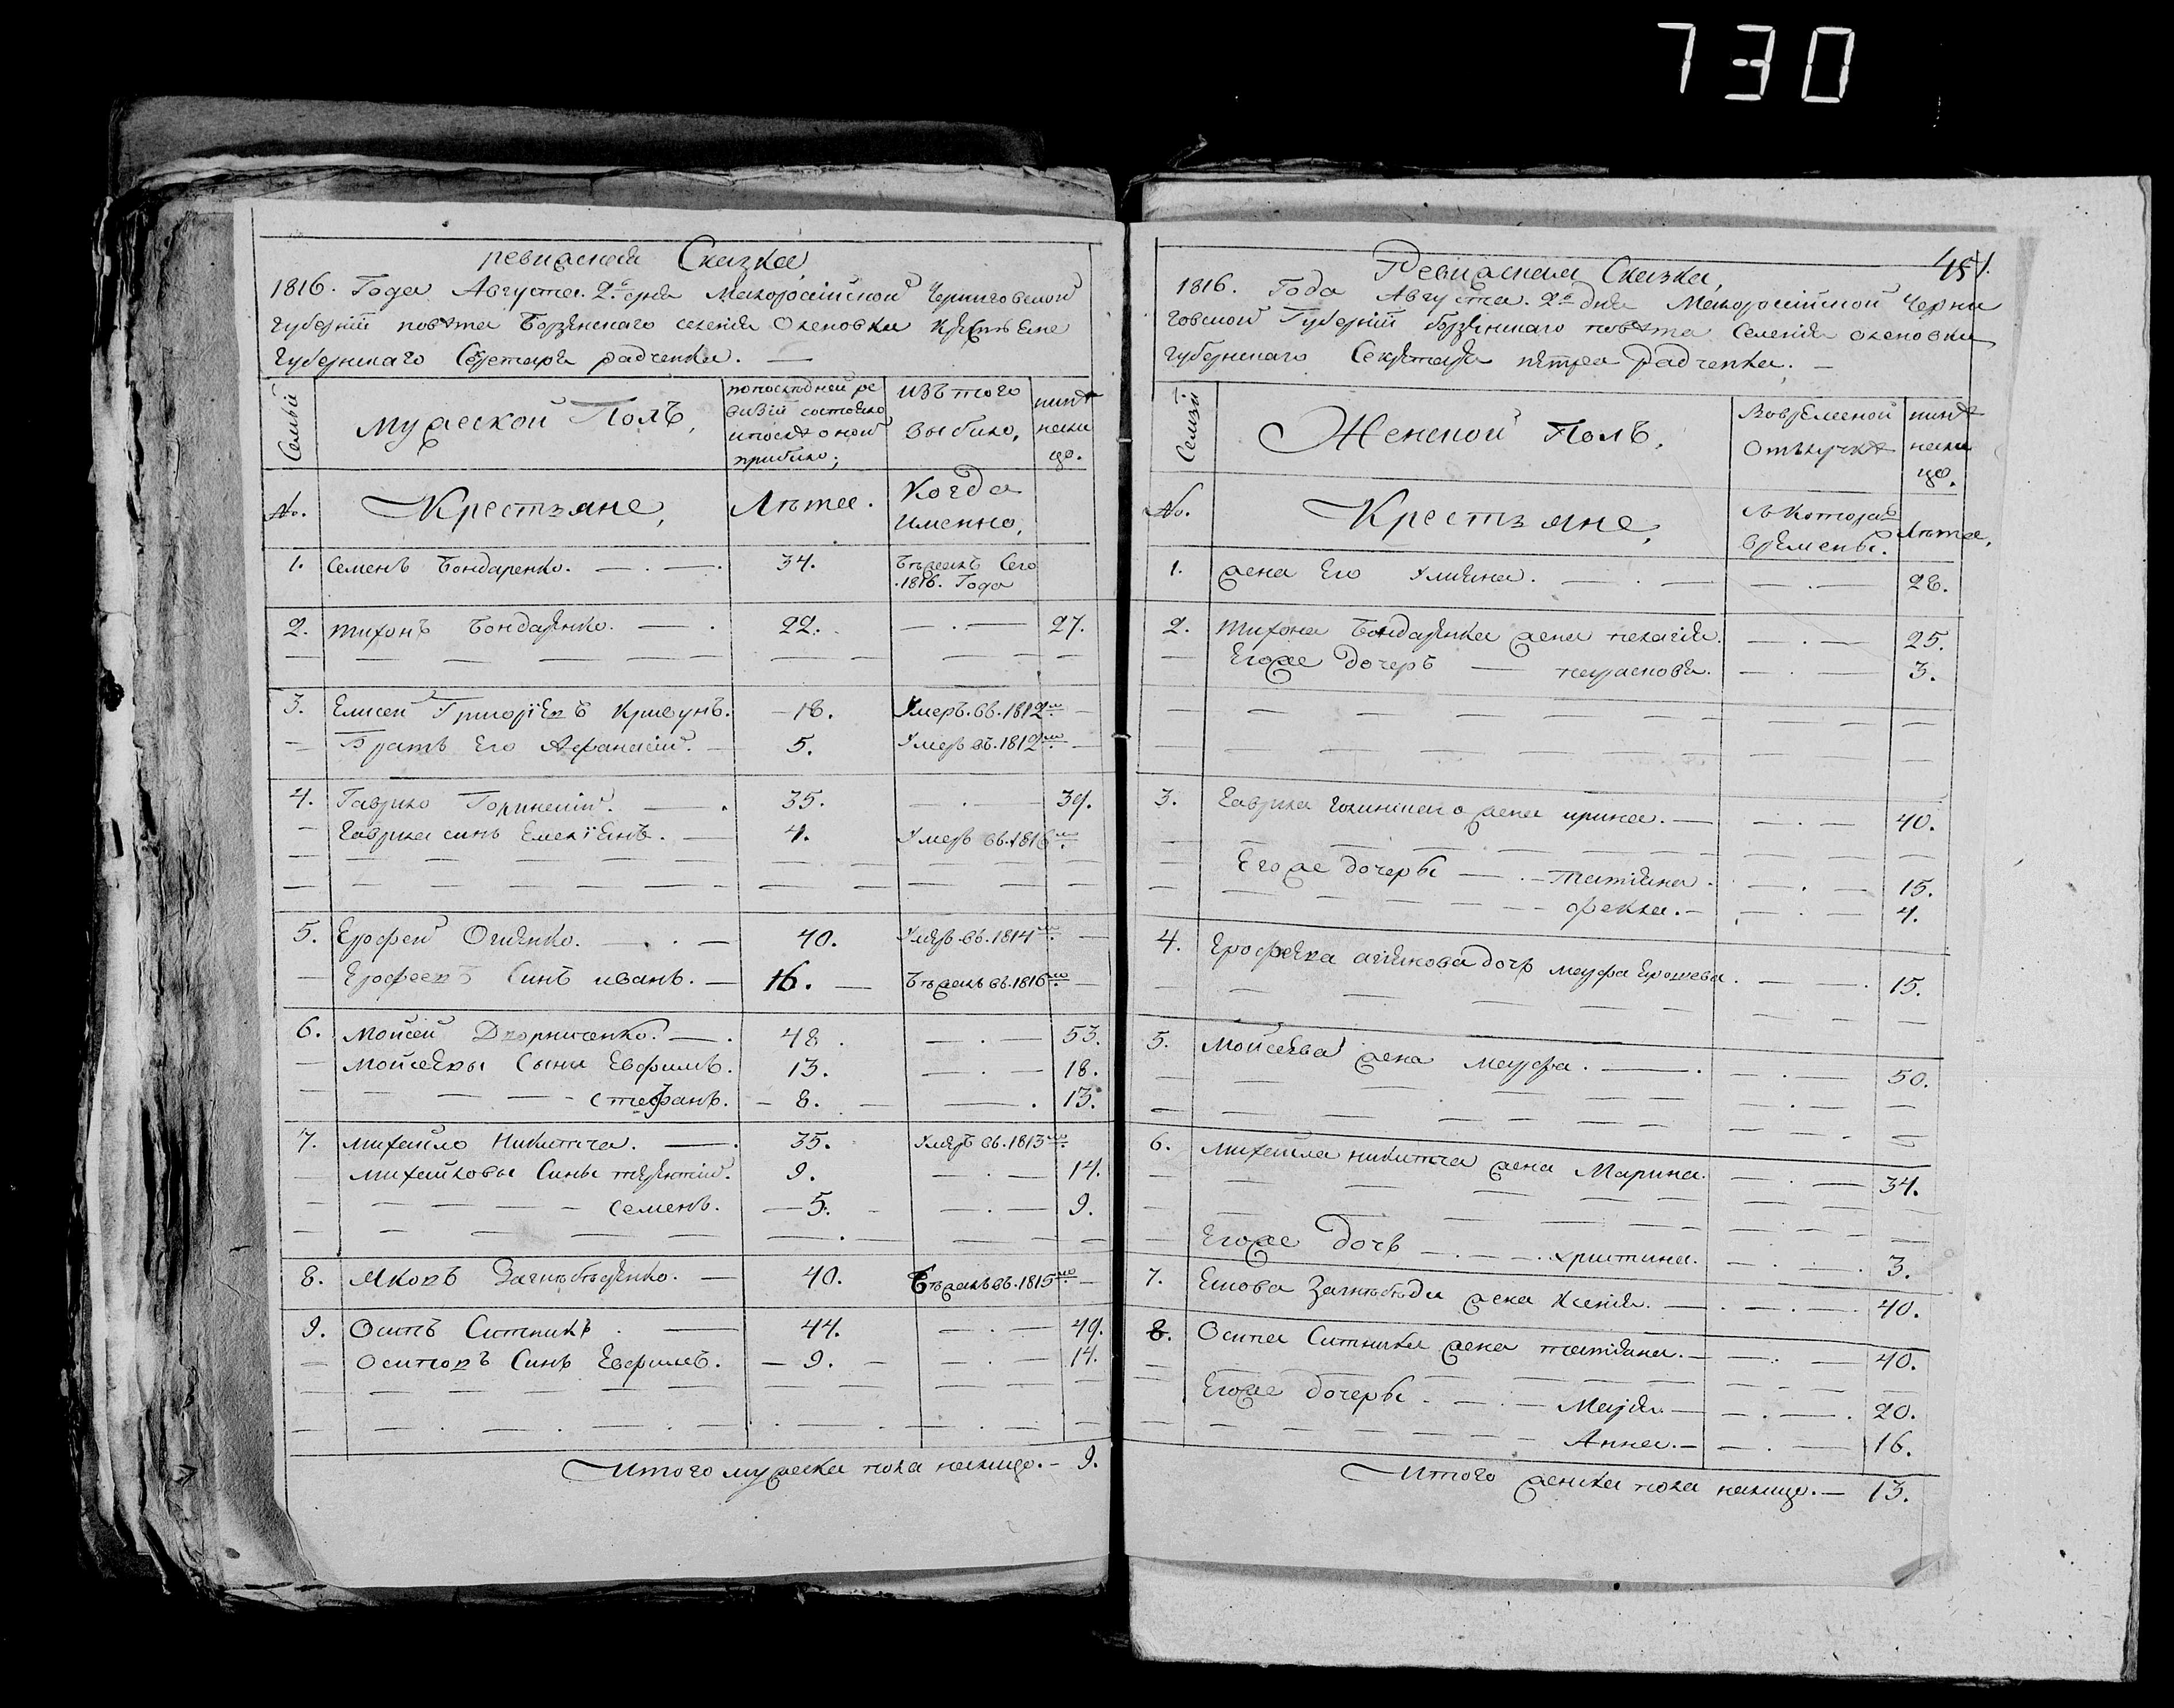 730
ревизская Сказка,
1816. Года Августа. 2го дня Малоросийской Черниговской
губернии повѣта Борзенского селения Оленовки крестьяне
губернскаго Секретара радченка. —
Семьи
мужеской Полъ,
попоследней ре
визии состояло
и после оной
прибыло;
изъ того
выбыло,
нине
нали
цо.
№.
Крестьяне,
Лѣта.
Когда
именно,
1. Семенъ Бондаренко. — 34. Бѣжалъ Сего
.1816. Года
2. тихонъ Бондаренко. — 22. — 27.
3. Елисей Григориевъ Кривунъ. 18. Умеръ.въ.1812мъ
Братъ Его Афанасий. 5. Умеръ въ.1812мъ
4. Гаврило Голинский. — 35. — 39.
Гаврила синъ Емелїянъ. — 4. Умеръ въ.1816мъ
5. Ерофей Огиенко. — 40. Умеръ въ.1814мъ
Ерофеевъ Синъ иванъ. — 16. — Бѣжалъ въ.1816мъ
6. Мойсей Дворниченко. — 48. — 53.
Мойсеевы Сыны Евфимъ. 13. — 18.
Стефанъ. 8. — 13.
7. михайло Никитча. — 35. Умеръ въ.1813мъ
михайловы Сины терентий. 9. — 14.
семенъ. 5. — 9.
8. Яковъ Загнибѣденко. — 40. Бѣжалъ въ.1815мъ
9. Осипъ Ситникъ. — 44. — 49.
Осиповъ Синъ Евфимъ. 9. — 14.
Итого мужеска пола налицо. — 9.
451.
Ревизская Сказка,
1816. Года Августа. 2го дня Малоросийской Черни
говской Губернии борзенскаго повѣта Селения оленовки
губернскаго Секретара петра Радченка. —
Семьи
Женской Полъ,
Вовременой
Отълучкѣ
нинѣ
нали
цо.
№.
Крестьяне,
съ которагъ
времены.
Лѣта,
1. жена Его Улияна. — 28.
2. Тихона Бондаренка жена пелагия. — 25.
Егоже дочеръ — парасковя. — 3.
3. Гаврила голинскаго жена ирина. — 40.
Егоже дочеры — татияна. — 15.
фекла. — 4.
4. Ерофеева агиенкова дочъ мауфа Ерошева. — 15.
5. Мойсеева жена мауфа. — 50.
6. михайла никитча жена Марина. — 34.
Егоже Дочъ — христина. — 3.
7. Екова Загнибѣди жена Ксения. — 40.
8. Осипа Ситника жена татияна. — 40.
Егоже дочеры — Мария — 20.
Анна. — 16.
Итого женска пола налицо. — 13.